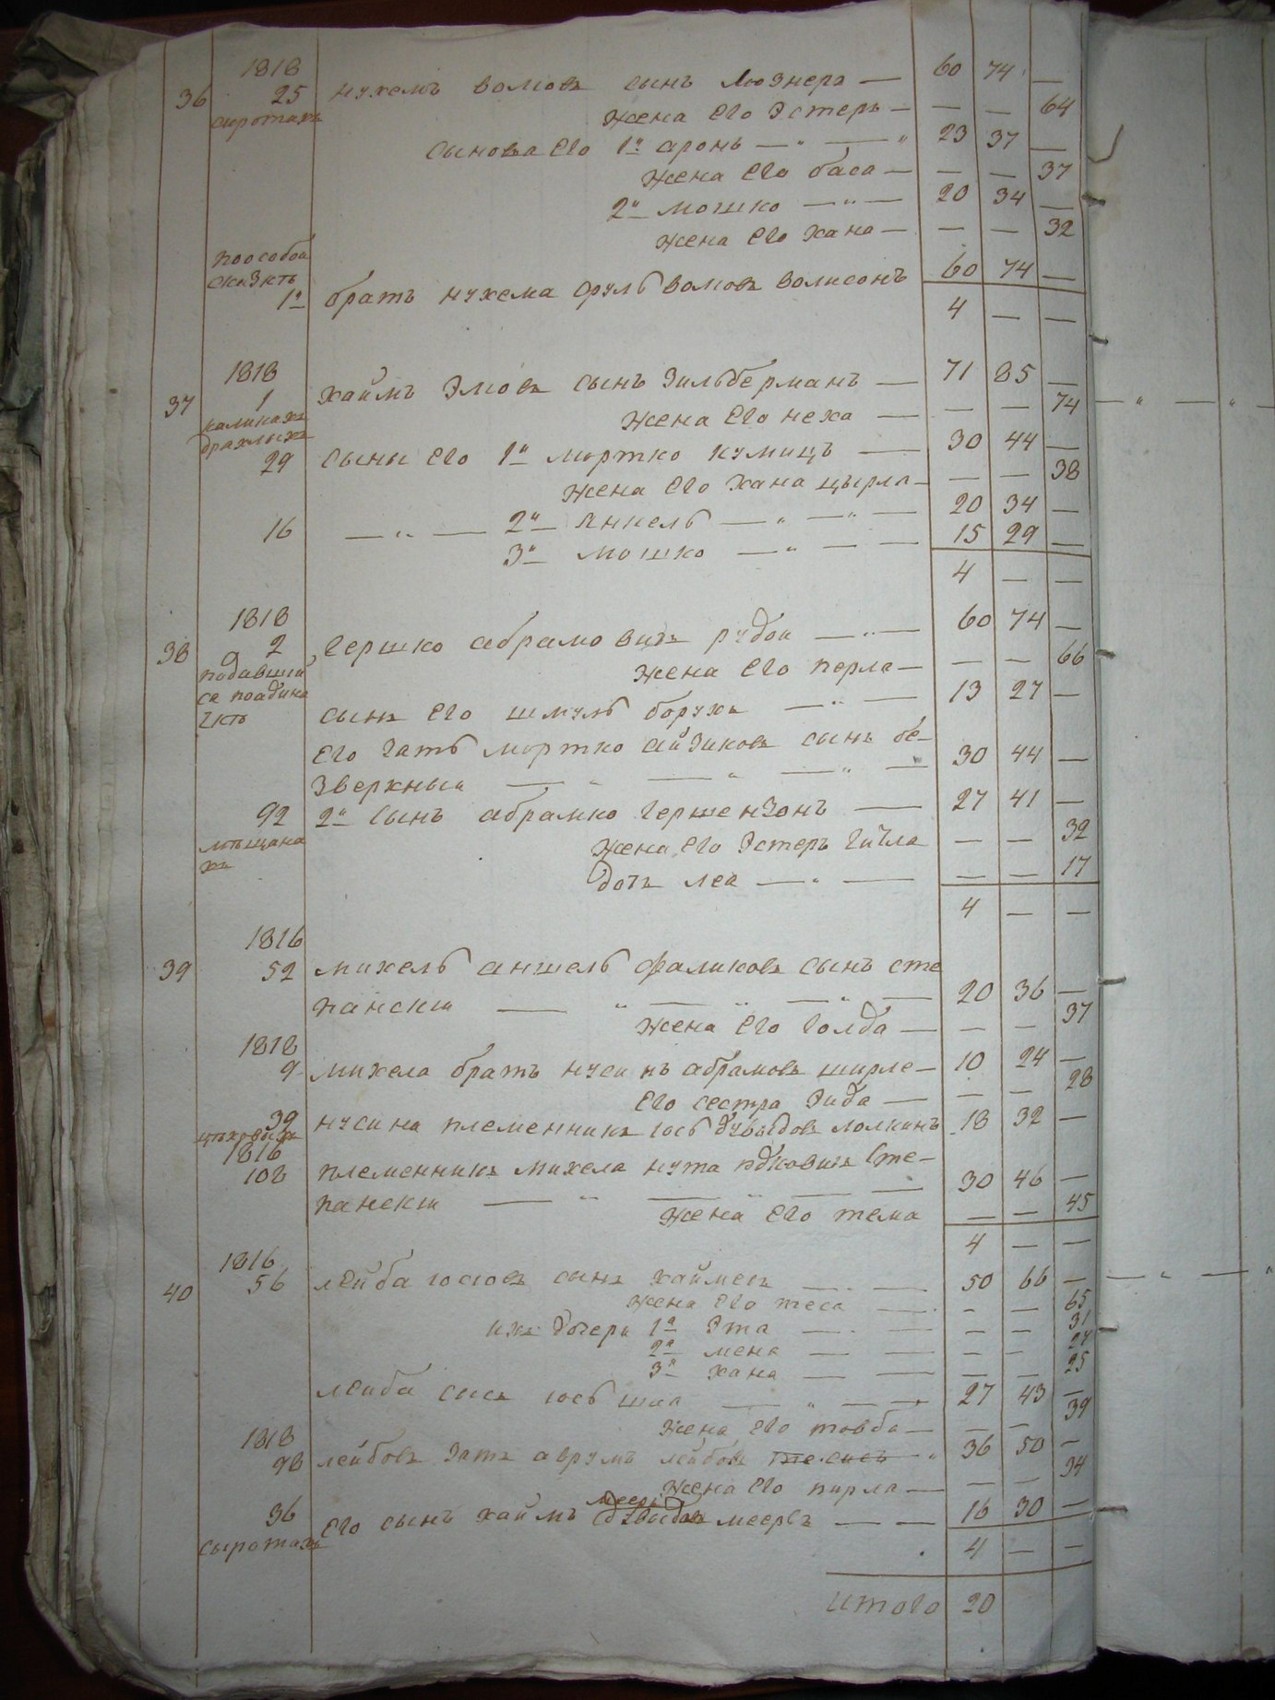 1818
36 25 нухемъ волков сынъ Люзнеръ — 60 74 —
сиротахъ
жена Его Эстеръ — — — 64
сыновья Его 1й аронъ — " — " 23 37 —
жена Его баса — — — 37
2й мошко — " — 20 34 —
жена Его хана — — — 32
поособой
скаЗкть
1й братъ нухема сруль волков волисонъ 60 74 —
4 — —
1818
37 1 хаимъ Элювъ сынъ Зильберманъ — 71 85 —
каликахъ
драхлыхъ
жена Его неха — — — 74
29 сыны Его 1й мортко кумицъ — 30 44 —
жена Его хана цырла — — — 38
16 — " — 2й Янкель — " — " — 20 34 —
3й мошко — " — — 15 29 —
4 — —
1818
38 2 гершко абрамовичъ рудои — " — 60 74 —
подавший
ся поадина
чкть
жена Его перла — — — 66
сынъ Его шмуль борухъ — " — 13 27 —
Его Зать мортко айзиковъ сынъ бе-
Зверхный — " — " — " — 30 44 —
92 2й сынъ абрамко гершензонъ — 27 41 —
мтьщана
хъ
жена Его Эстеръ гитла — — 32
дочь леа — " — — — 17
4 — —
1816
39 52 михель аншель фаликовъ сынъ сте
панский — " — " — " — 20 36 —
жена Его голда — — — 37
1818
9 михела братъ нусинъ абрамовъ ширле- 10 24 —
Его сестра Зида — — — 28
39 нусина племенникъ иось дувыдовъ лолкинъ 18 32 —
цтьховыхъ
1816
108 племенникъ михела нута Сте-
панский — " — " — — 30 46 —
жена Его тема — — 45
4 — —
1816
40 56 лейба иосиовъ сынъ хаимекъ — — 50 66 —
жена Его теса — — — 65
ихъ дочери 1я Эта — — — — 31
2я мена — — — — 27
3я хана — — — — 25
лейба сынъ иось шая — " — — 27 43 —
жена Его товба — — — 39
1818
98 лейбовъ Зять аврумъ лейбовъ " 36 50 —
жена Его пирла — — — 34
меер
36 Его сынъ хаимъ дувыдовъ мееръ — — 16 30 —
сыротахъ
4 — —
Итого 20